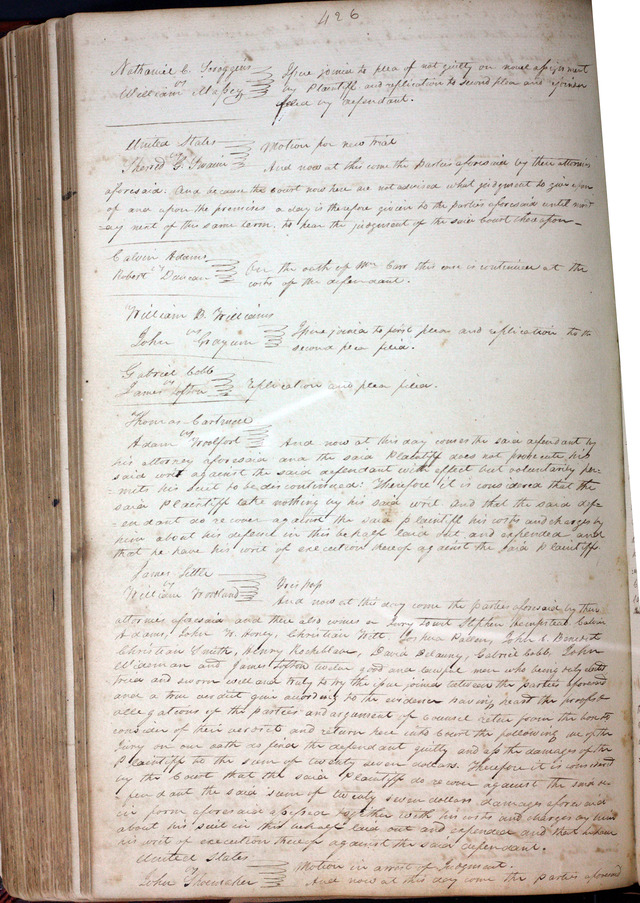 426
Nathaniel C. Scroggins
vs
William Massey
Issue joined to plea of not guilty on novel assignment
by Plaintiff and replication to second plea and rejoinder
filed by Defendant.
United States
vs
Motion for new trial
And now at this come the Parties aforesaid by their attornies
aforesaid: And because the Court now here are not advised what judgment to give upon
of and upon the premises a day is therefore given to the parties aforesaid until
ay next of this same term, to hear the judgement of the said Court thereupon—
Calvin Adams
vs
Robert Duncan
On the oath of Mr Carr this case is continued at the
costs of the defendant.
William B. Williams
vs
John Grayum
Issue joined to first plea and replication to the
second plea filed.
Gabriel Cobb
vs
James Loften
Replication and plea filed.
Thomas
vs
Adam Woolfort
And now at this day comes the said defendant by
his attorney aforesaid and the said Plaintiff does not prosecute his
said writ against the said defendant with effect but voluntarily per=
=mits his suit to be discontinued: Therefore it is considered that the
said Plaintiff take nothing by his said writ and that the said defe
=endant do recover against the said Plaintiff his costs and charges by
him about his defence in this behalf laid out and expended and
that he have his writ of execution hereof against the said Plaintiff
James
vs
William
And now at this day come the Parties aforesaid by their
attornies aforesaid and there also comes a Jury towit Stephen Hempstead Calvin
Adams, John N. Honey, Christian Witt, Joshua Palen, John A. Benedict
Christian Smith, Henry Rockblean, David Delauny, Gabriel Cobb, John
Wideman and James Loften twelve good and lawful men who being duly elected
tried and sworn well and truly to try the issue joined between the parties aforesaid
and a true verdict give according to the evidence having heard the proofs
allegations of the parties and argument of counsel retire from the bar to
consider of their verdict and return here into Court the following we of the
Jury on our oath do find the defendant guilty and assess the damages of the
Plaintiff to the sum of twenty seven dollars. Therefore it is considered
by the Court that the said Plaintiff do recover against the said de
=fendant the said sum of twenty seven dollars damages aforesaid
in form aforesaid assessed together with his costs and charges by him
about his suit in this behalf laid out and expended and that he have
his writ of execution thereof against the said defendant.
United States
vs
John Shoemaker
Motion in arrest of Judgment.
And now at this day come the parties aforesaid